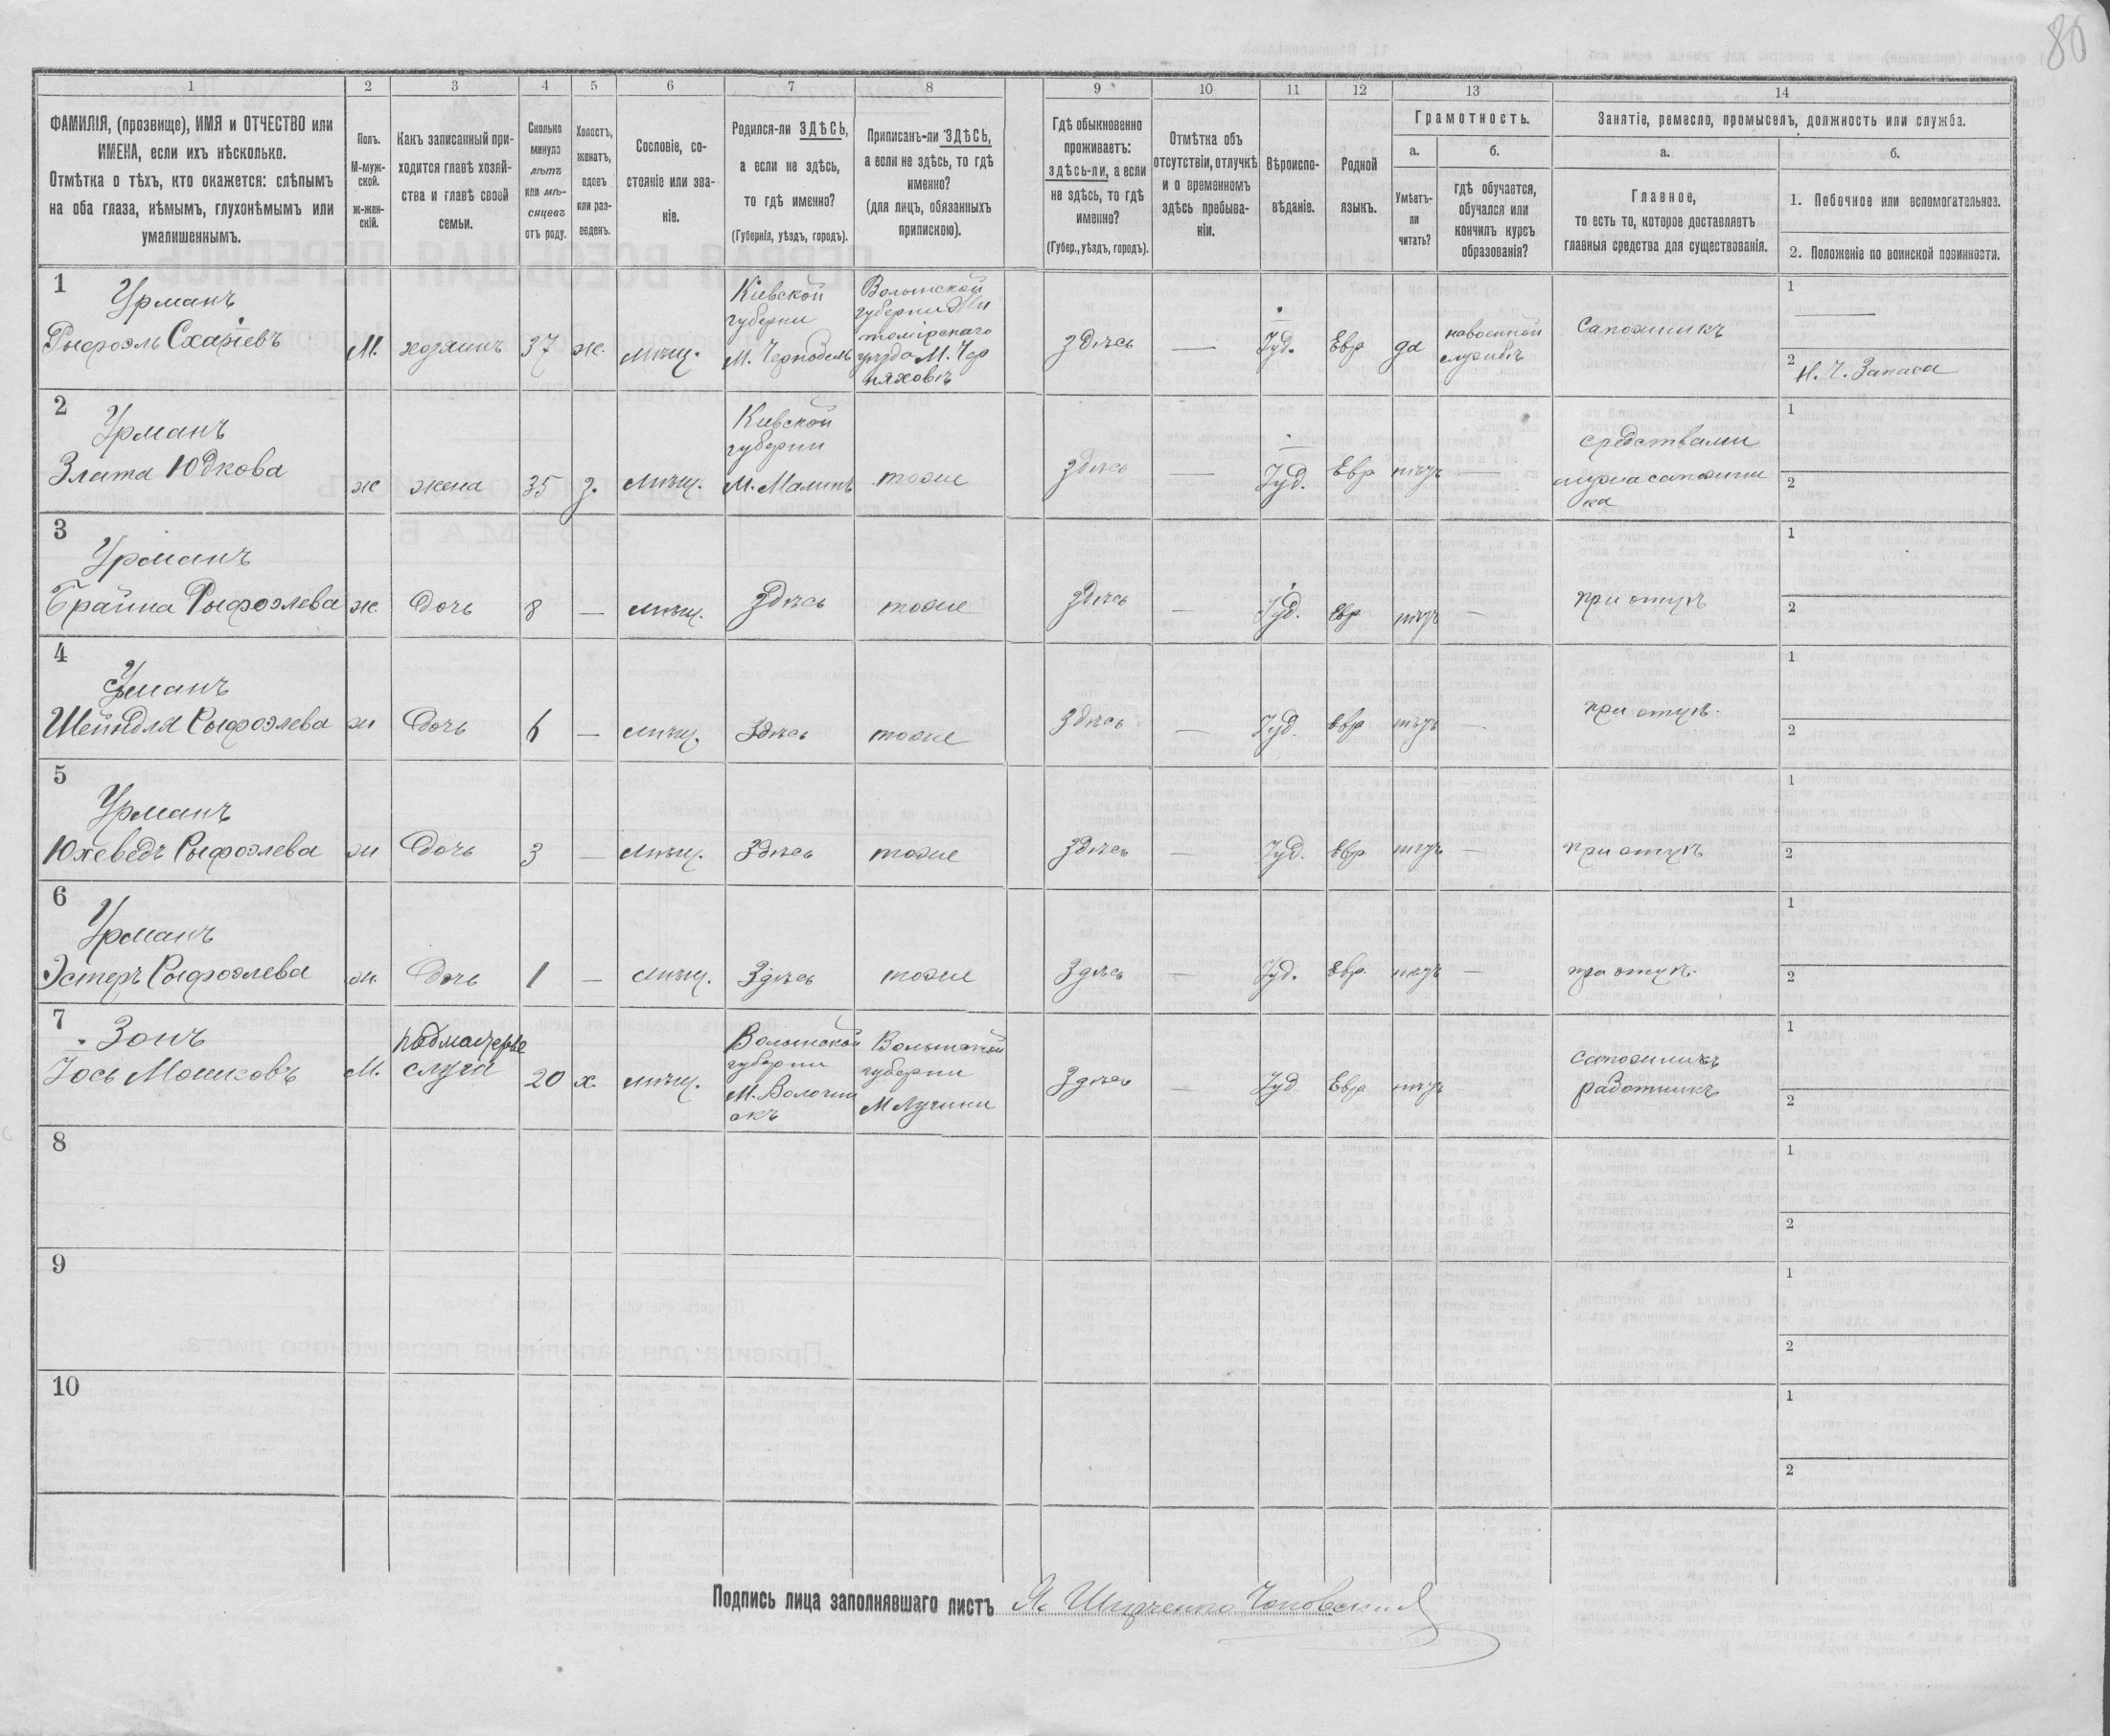 80
1 2 3 4 5 6 7 8 9 10 11 12 13 14
ФАМИЛІЯ, (прозвище), ИМЯ и ОТЧЕСТВО или
ИМЕНА, если ихъ нѣсколько.
Отмѣтка о тѣхъ, кто окажется: слѣпымъ
на оба глаза, нѣмымъ, глухонѣмымъ или
умалишеннымъ.
Полъ.
М-муж-
ской.
ж-жен-
скій.
Какъ записанный при-
ходится главѣ хозяй-
ства и главѣ своей
семьи.
Сколько
минуло
лѣтъ
или мѣ-
сяцевъ
отъ роду.
Холостъ,
женатъ,
вдовъ
или раз-
веденъ.
Сословіе, со-
стояніе или зва-
ніе.
Родился-ли ЗДѢСЬ,
а если не здѣсь,
то гдѣ именно?
(Губернія, уѣздъ, городъ).
Приписанъ-ли ЗДѢСЬ,
а если не здѣсь, то гдѣ
именно?
(для лицъ, обязанныхъ
припискою).
Гдѣ обыкновенно
проживаетъ:
здѣсь-ли, а если
не здѣсь, то гдѣ
именно?
(Губер., уѣздъ, городъ).
Отмѣтка объ
отсутствіи, отлучкѣ
и о временномъ
здѣсь пребыва-
ніи.
Вѣроиспо-
вѣданіе.
Родной
языкъ.
Грамотность.
а.
Умѣетъ-
ли
читать?
б.
гдѣ обучается,
обучался или
кончилъ курсъ
образованія?
Занятіе, ремесло, промыселъ, должность или служба.
а.
Главное,
то есть то, которое доставляетъ
главныя средства для существованія.
б.
1. Побочное или вспомогательное.
2. Положеніе по воинской повинности.
1
Урманъ
М. хозяинъ 37 ж. мѣщ.
Кіевской
губерни
Волынской
губерни Жи
томірскаго
уѣзда М. Чер
няховъ
здѣсь — Іуд. Евр да
службѣ
Сапожникъ
1 —
2 Н. Ч. Запаса
2
Урманъ
Злата Юдкова
ж жена 35 з. мѣщ.
Кіевской
губерни
М. Малинъ
тоже
здѣсь — Іуд. Евр нѣтъ —
средствами
мужа сапожни
ка
1
2
3
Урманъ
Брайна Рыфоэлева
ж. дочь 8 — мѣщ. Здѣсь тоже
здѣсь — Іуд. Евр нѣтъ — при отцѣ
1
2
4
Урманъ
Шейндля Рыфоэлева
ж дочь 6 — мѣщ. Здѣсь тоже
здѣсь — Іуд. Евр нѣтъ — при отцѣ.
1
2
5
Урманъ
Юхеведъ Рыфоэлева
ж дочь 3 — мѣщ. Здѣсь тоже
здѣсь — Іуд. Евр нѣтъ — при отцѣ
1
2
6
Урманъ
Эстеръ Рыфоэлева
ж. дочь 1 — мѣщ. Здѣсь тоже
Здѣсь — Іуд. Евр. нѣтъ — при отцѣ.
1
2
7
Зонъ
Іось Мошковъ
М.
подмастерье
слуга
20 х. мѣщ.
Волынской
губерни
Волынской
губерни
М Лучини
Здѣсь — Іуд. Евр нѣтъ
сапожникъ
работникъ
1
2
8
1
2
9
1
2
10
1
2
Подпись лица заполнявшаго листъ